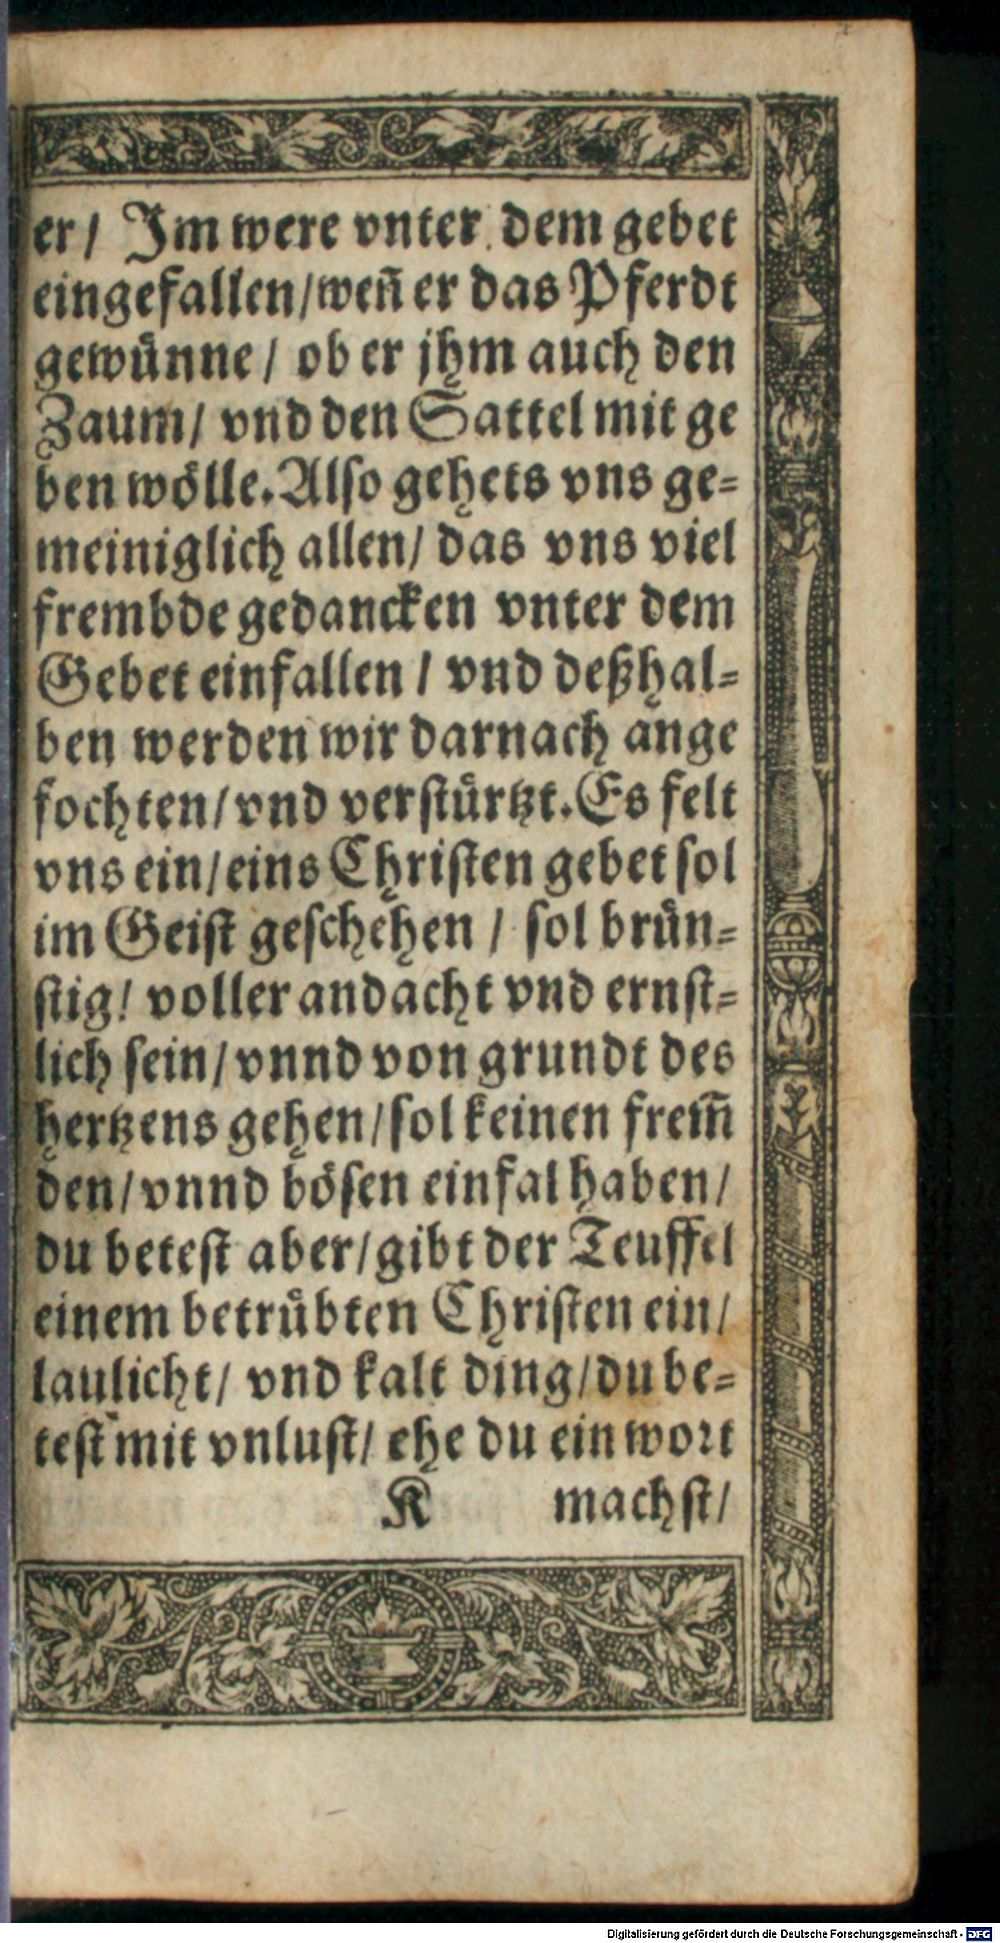 er/ Im were vnter dem gebet
eingefallen/wen̄ er das Pferdt
gewünne/ ob er jhm auch den
Zaum/ vnd den Sattel mit ge
ben wölle. Also gehets vns ge-
meiniglich allen/ das vns viel
frembde gedancken vnter dem
Gebet einfallen/ vnd deßhal-
ben werden wir darnach ange
fochten/vnd verstürtzt. Es felt
vns ein/eins Christen gebet sol
im Geist geschehen/ sol brün-
stig/ voller andacht vnd ernst-
lich sein/vnnd von grundt des
hertzens gehen/sol keinen frem̄
den/vnnd bösen einfal haben/
du betest aber/gibt der Teuffel
einem betrübten Christen ein/
laulicht/ vnd kalt ding/du be-
test mit vnlust/ ehe du ein wort
K machst/
Digitalisierung gefördert durch die Deutsche Forschungsgemeinschaft - DFG